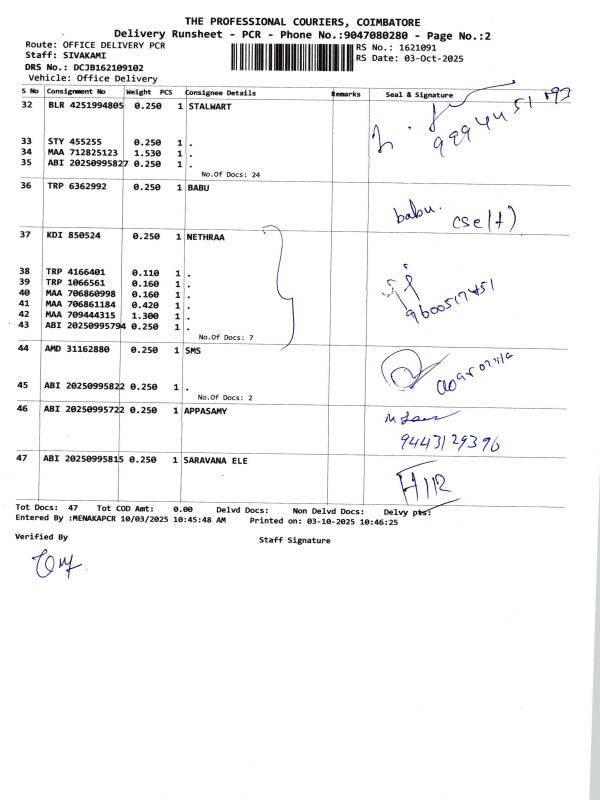 THE PROFESSIONAL COURIERS, COIMBATORE
Delivery Runsheet - PCR - Phone No.:9047080280 - Page No.:2
Route: OFFICE DELIVERY PCR
Staff: SIVAKAMI
DRS No.: DCJB162109102
Vehicle: Office Delivery
RS No.: 1621091
RS Date: 03-Oct-2025
S No Consignment No Weight PCS Consignee Details Remarks Seal & Signature
32 BLR 4251994805 0.250 1 STALWART
33 STY 455255 0.250 1 .
34 MAA 712825123 1.530 1 .
35 ABI 20250995827 0.250 1 .
No.Of Docs: 24
36 TRP 6362992 0.250 1 BABU
babu.
cse(t)
37 KDI 850524 0.250 1 NETHRAA
38 TRP 4166401 0.110 1 .
39 TRP 1066561 0.160 1 .
40 MAA 706860998 0.160 1 .
41 MAA 706861184 0.420 1 .
42 MAA 709444315 1.300 1 .
43 ABI 20250995794 0.250 1 .
9600517451
No.Of Docs: 7
44 AMD 31162880 0.250 1 SMS
45 ABI 20250995822 0.250 1 .
No.Of Docs: 2
46 ABI 20250995722 0.250 1 APPASAMY
9443129396
47 ABI 20250995815 0.250 1 SARAVANA ELE
Tot Docs: 47 Tot COD Amt: 0.00 Delvd Docs: Non Delvd Docs: Delvy pts:
Entered By :MENAKAPCR 10/03/2025 10:45:48 AM Printed on: 03-10-2025 10:46:25
Verified By
Staff Signature